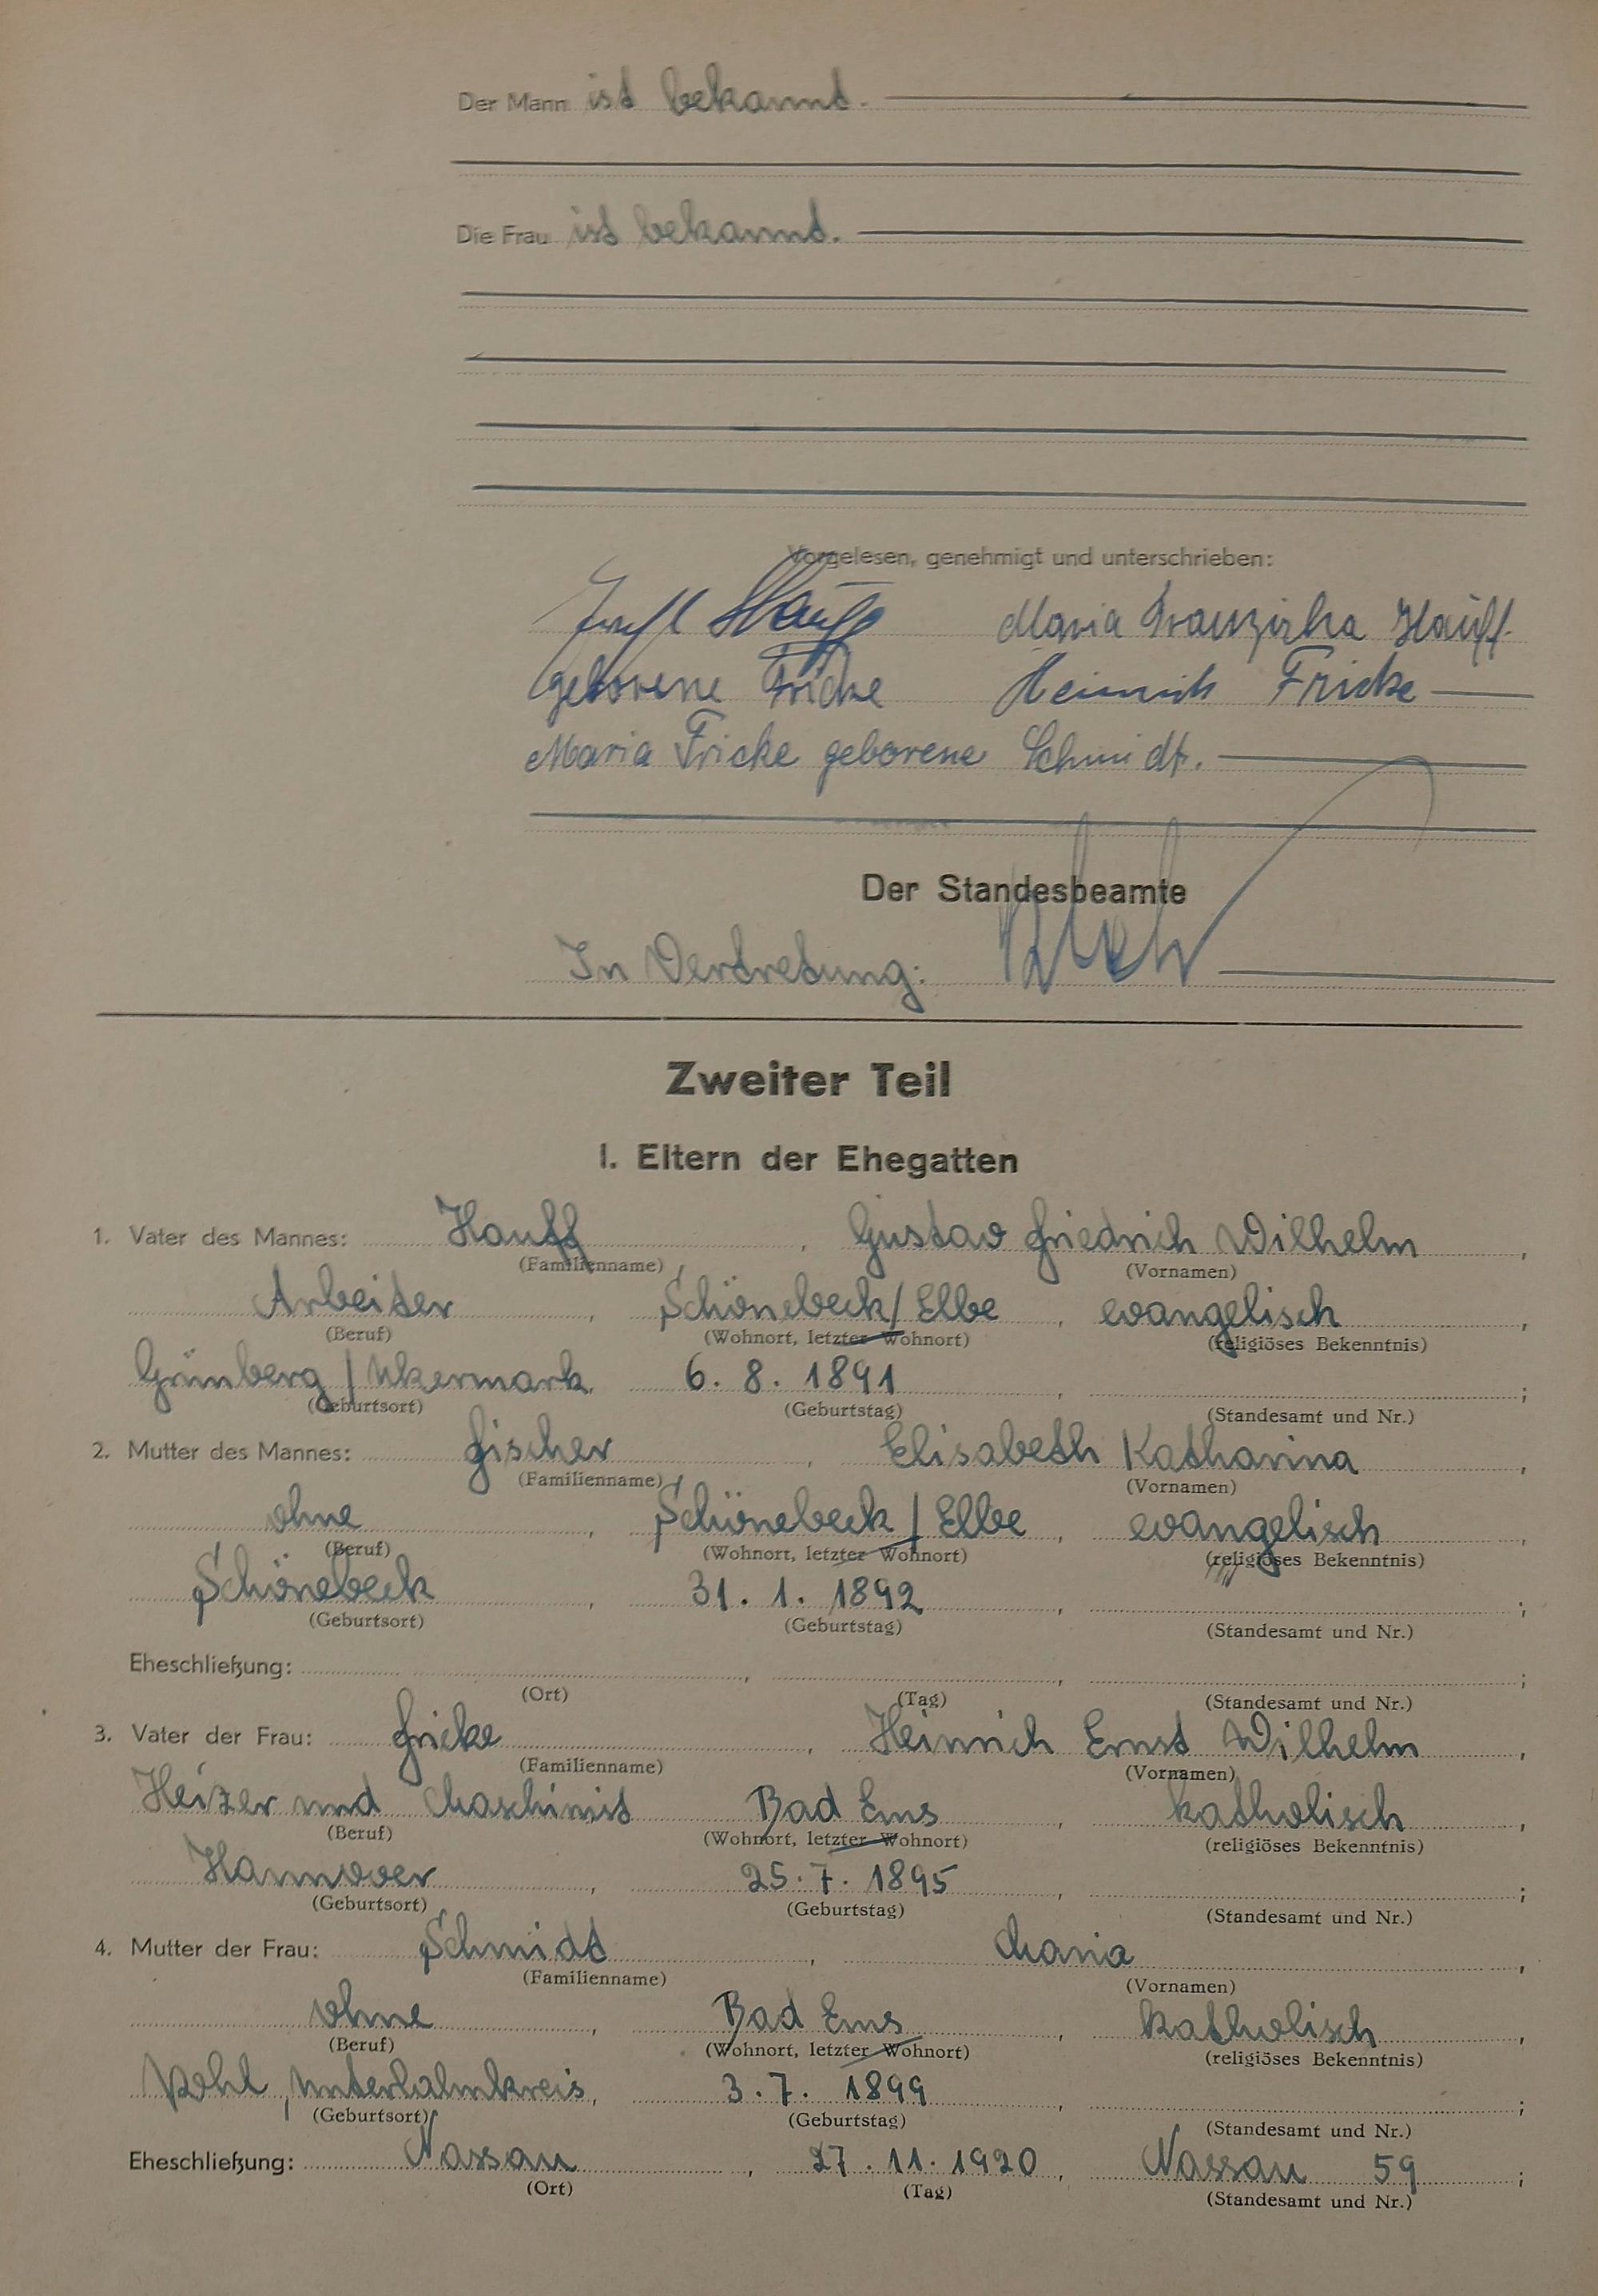 Der Mann ist bekannt.
Die Frau ist bekannt.
Vorgelesen, genehmigt und unterschrieben:
Hauff Maria Franziska Hauff
geborene Fricke Heinrich Fricke
Maria Fricke geborene Schmidt.
Der Standesbeamte
In Vertretung:
Zweiter Teil
I. Eltern der Ehegatten
1. Vater des Mannes: Hauff, Gustav Friedrich Wilhelm,
(Familienname) (Vornamen)
Arbeiter, Schönebeck/Elbe, evangelisch,
(Beruf) (Wohnort, letzter Wohnort) (religiöses Bekenntnis)
Grünberg/Ukermark, 6. 8. 1891, ;
(Geburtsort) (Geburtstag) (Standesamt und Nr.)
2. Mutter des Mannes: Fischer, Elisabeth Katharina,
(Familienname) (Vornamen)
ohne, Schönebeck/Elbe, evangelisch,
(Beruf) (Wohnort, letzter Wohnort) (religiöses Bekenntnis)
Schönebeck, 31. 1. 1892, ;
(Geburtsort) (Geburtstag) (Standesamt und Nr.)
Eheschließung: , , ;
(Ort) (Tag) (Standesamt und Nr.)
3. Vater der Frau: Fricke, Heinrich Ernst Wilhelm,
(Familienname) (Vornamen)
Heizer und Maschinist Bad Ems, katholisch,
(Beruf) (Wohnort, letzter Wohnort) (religiöses Bekenntnis)
Hannover, 25. 7. 1895, ;
(Geburtsort) (Geburtstag) (Standesamt und Nr.)
4. Mutter der Frau: Schmidt, Maria,
(Familienname) (Vornamen)
ohne, Bad Ems, katholisch,
(Beruf) (Wohnort, letzter Wohnort) (religiöses Bekenntnis)
Pohl, Unterlahnkreis, 3. 7. 1899, ;
(Geburtsort) (Geburtstag) (Standesamt und Nr.)
Eheschließung: Nassau, 27. 11. 1920, Nassau 59;
(Ort) (Tag) (Standesamt und Nr.)